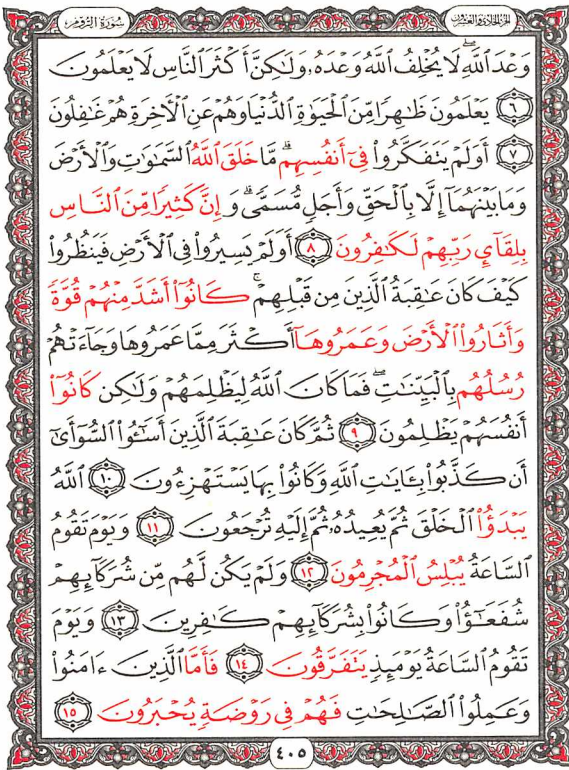 الجزء الحادي والعشرون
سورة الروم
وَعْدَ ٱللَّهِ ۖ لَا يُخْلِفُ ٱللَّهُ وَعْدَهُۥ وَلَٰكِنَّ أَكْثَرَ ٱلنَّاسِ لَا يَعْلَمُونَ
٦ يَعْلَمُونَ ظَٰهِرًا مِّنَ ٱلْحَيَوٰةِ ٱلدُّنْيَا وَهُمْ عَنِ ٱلْأَخِرَةِ هُمْ غَٰفِلُونَ
٧ أَوَلَمْ يَتَفَكَّرُوا۟ فِىٓ أَنفُسِهِم ۗ مَّا خَلَقَ ٱللَّهُ ٱلسَّمَٰوَٰتِ وَٱلْأَرْضَ
وَمَا بَيْنَهُمَآ إِلَّا بِٱلْحَقِّ وَأَجَلٍ مُّسَمًّى ۗ وَإِنَّ كَثِيرًا مِّنَ ٱلنَّاسِ
بِلِقَآئِ رَبِّهِمْ لَكَٰفِرُونَ ٨ أَوَلَمْ يَسِيرُوا۟ فِى ٱلْأَرْضِ فَيَنظُرُوا۟
كَيْفَ كَانَ عَٰقِبَةُ ٱلَّذِينَ مِن قَبْلِهِمْ ۚ كَانُوٓا۟ أَشَدَّ مِنْهُمْ قُوَّةً
وَأَثَارُوا۟ ٱلْأَرْضَ وَعَمَرُوهَآ أَكْثَرَ مِمَّا عَمَرُوهَا وَجَآءَتْهُمْ
رُسُلُهُم بِٱلْبَيِّنَٰتِ ۖ فَمَا كَانَ ٱللَّهُ لِيَظْلِمَهُمْ وَلَٰكِن كَانُوٓا۟
أَنفُسَهُمْ يَظْلِمُونَ ٩ ثُمَّ كَانَ عَٰقِبَةَ ٱلَّذِينَ أَسَٰٓـُٔوا۟ ٱلسُّوٓأَىٰٓ
أَن كَذَّبُوا۟ بِـَٔايَٰتِ ٱللَّهِ وَكَانُوا۟ بِهَا يَسْتَهْزِءُونَ ١٠ ٱللَّهُ
يَبْدَؤُا۟ ٱلْخَلْقَ ثُمَّ يُعِيدُهُۥ ثُمَّ إِلَيْهِ تُرْجَعُونَ ١١ وَيَوْمَ تَقُومُ
ٱلسَّاعَةُ يُبْلِسُ ٱلْمُجْرِمُونَ ١٢ وَلَمْ يَكُن لَّهُم مِّن شُرَكَآئِهِمْ
شُفَعَٰٓؤُا۟ وَكَانُوا۟ بِشُرَكَآئِهِمْ كَٰفِرِينَ ١٣ وَيَوْمَ
تَقُومُ ٱلسَّاعَةُ يَوْمَئِذٍ يَتَفَرَّقُونَ ١٤ فَأَمَّا ٱلَّذِينَ ءَامَنُوا۟
وَعَمِلُوا۟ ٱلصَّٰلِحَٰتِ فَهُمْ فِى رَوْضَةٍ يُحْبَرُونَ ١٥
٤٠٥